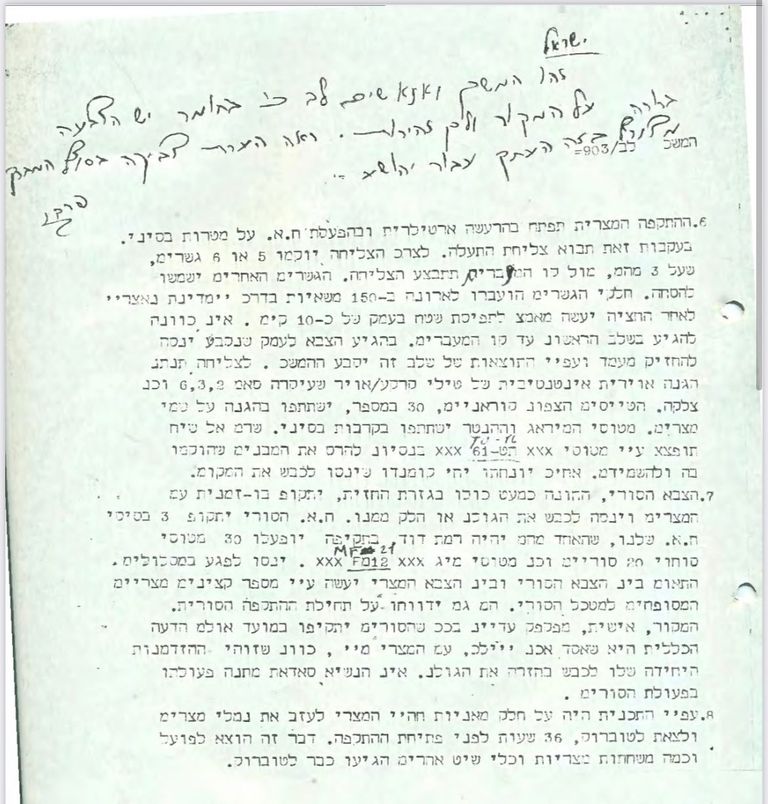 ישראל
זהו המשך ואנא שים לב כי בחומר יש הצבעה
ברורה על המקור ולכן זהירות. ראה הערת צביקה בסוף המברק
מצורף בזה העתק עבור יהושע
המשכ לב/903=
6.ההתקפה המצרית תפתח בהרעשה ארטילרית ובהפעלת ח.א. על מטרות בסיני.
בעקבות זאת תבוא צליחת התעלה. לצרכ הצליחה יוקמו 5 או 6 גשרימ,
שעל 3 מהמ, מול קו המעברימ תתבצע הצליחה. הגשרימ האחרימ ישמשו
להסחה. חלקי הגשרימ הועברו לארונה ב-150 משאיות בדרכ ״מדינת נאצר״
לאחר החציה יעשה מאמצ לתפיסת שטח בעמק של כ-10 קימ . אינ כוונה
להגיע בשלב הראשונ עד קו המעברימ. בהגיע הצבא לעמק שנקבע ינסה
להחזיק מעמד ועפ״י התוצאות של שלב זה יקבע ההמשכ . לצליחה תנתנ
הגנה אוירית אינטנסיבית של טילי קרקע/אויר שעיקרה סאמ 6,3,2 וכנ
צלקה. הטייסימ הצפונ קוראניימ, 30 במספר, ישתתפו בהגנה על שמי
מצרימ. מטוסי המיראג וההנטר ישתתפו בקרבות בסיני. שרמ אל שיח
TU-16
תופצצ ע״י מטוסי xxx תט-16 xxx בנסיונ להרס את המבנימ שהוקמו
בה ולהשמידמ. אח״כ יונחתו יחי קומנדו שינסו לכבש את המקומ.
7.הצבא הסורי, החונה כמעט כולו בגזרת החזית, יתקופ בו-זמנית עמ
המצרימ וינסה לכבש את הגולנ או חלק ממנו. ח.א. הסורי יתקופ 3 בסיסי
ח.א. שלנו, שהאחד מהמ יהיה רמת דוד, בתקיפה יופעלו 30 מטוסי
MF 21
סוחוי 20 סוריימ וכנ מטוסי מיג xxx FM12 xxx . ינסו לפגע במסלולימ.
התאומ בינ הצבא הסורי ובינ הצבא המצרי יעשה ע״י מספר קצינימ מצריימ
המסופחימ למטכל הסורי. המ גמ ידווחו על תחילת ההתקפה הסורית.
המקור, אישית, מפקפק עדיינ בככ שהסורימ יתקיפו במועד אולמ הדעה
הכללית היא שאסד אכנ ״ילכ, עמ המצרי מ״י , כוונ שזוהי ההזדמנות
היחידה שלו לכבש בחזרה את הגולנ. אינ הנשיא סאדאת מתנה פעולתו
בפעולת הסורימ .
8.עפ״י התכנית היה על חלק מאניות חה״י המצרי לעזב את נמלי מצרימ
ולצאת לטוברוק, 36 שעות לפני פתיחת ההתקפה. דבר זה הוצא לפועל
וכמה משחתות מצריות וכלי שיט אחרימ הגיעו כבר לטוברוק.